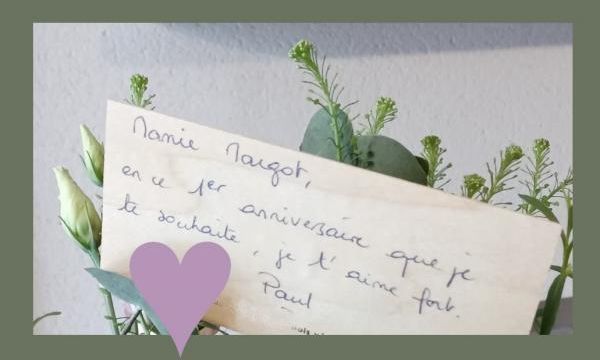 Mamie Margot,
en ce 1er anniversaire que je
te souhaite, je t'aime fort.
Paul